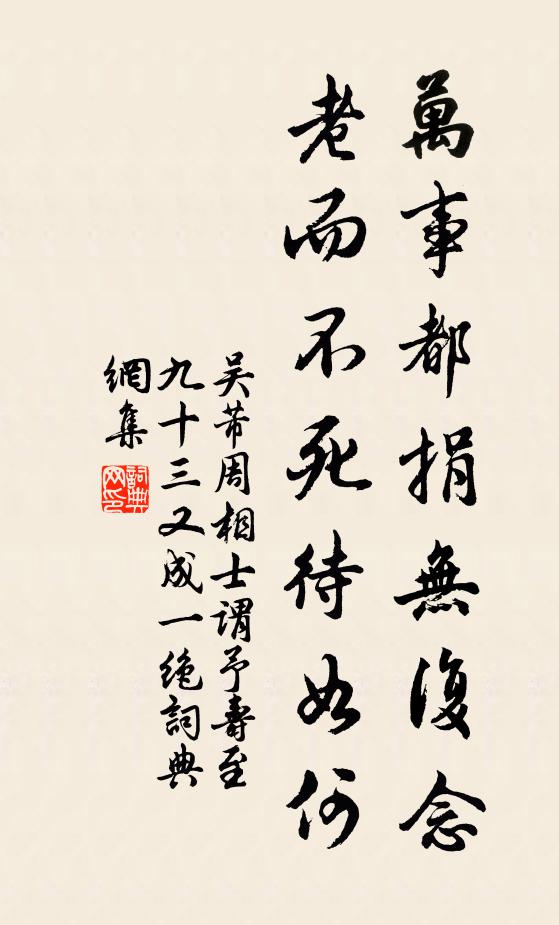 萬事都捐無復念
老而不死待如何
吳芾周相士謂予壽至
九十三又成一絶詞典
網集
詞典網印